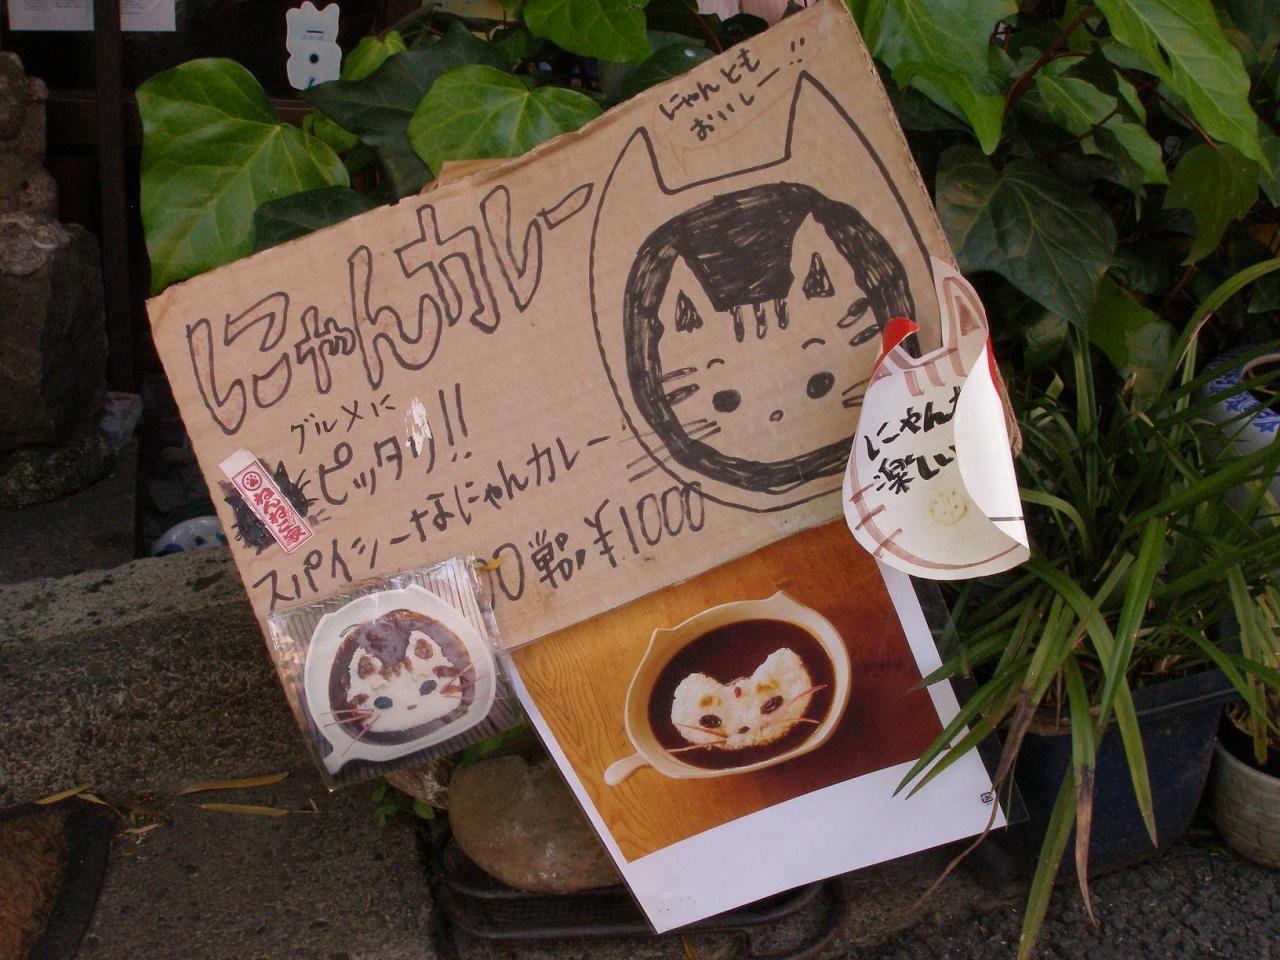 にゃんとも
おいしー!!
にゃんカレー
グルメに
ピッタリ!!
スパイシーなにゃんカレー
¥1000
ねんねこ家
にゃんカ
楽しい